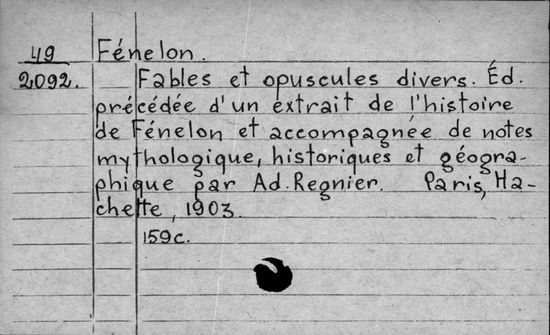 49 Fénelon.
2092. Fables et opuscules divers. Éd.
précédée d'un extrait de l'histoire
de Fénelon et accompagnée de notes
mythologique, historiques et géogra-
phique par Ad. Regnier. Paris, Ha-
chette, 1903.
159c.